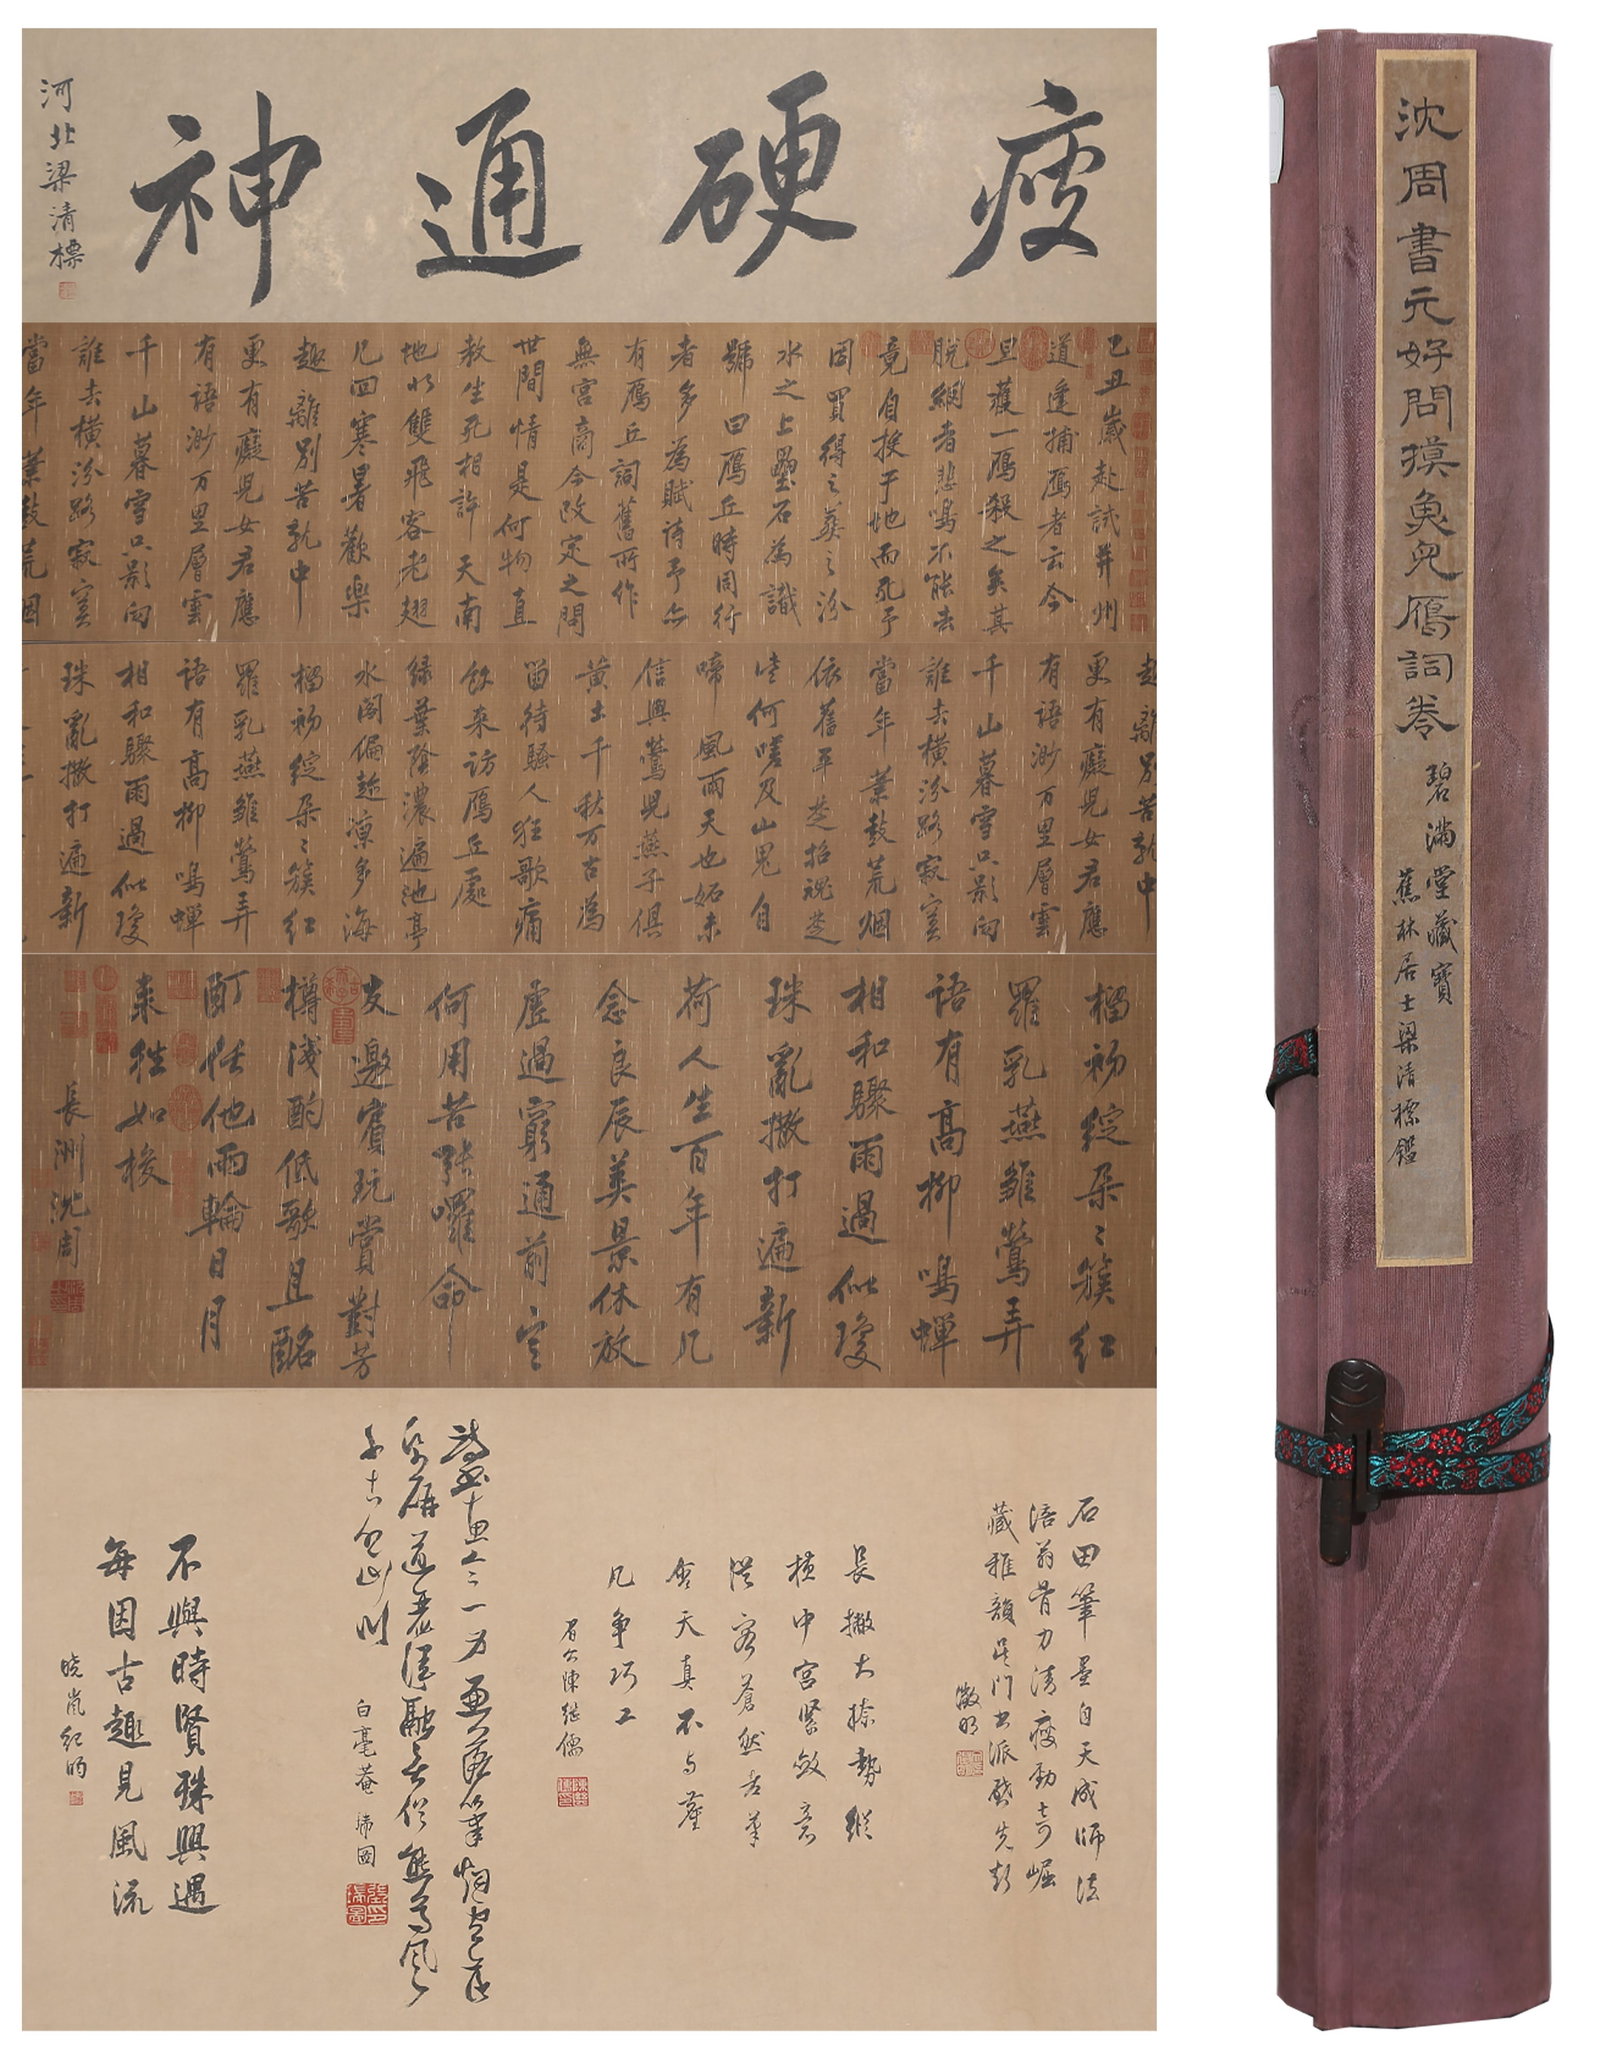 瘦硬通神
河北梁清標
乙丑歲赴試并州
道逢捕鴈者云今
旦獲一鴈殺之矣其
脫網者悲鳴不能去
竟自投于地而死予
因買得之葬之汾
水之上壘石為識
號曰鴈丘時同行
者多為賦詩予亦
有鴈丘詞舊所作
無宮商今改定之問
世間情是何物直
教生死相許天南
地北雙飛客老翅
几回寒暑歡樂
趣離別苦就中
更有癡兒女君應
有語渺万里層雲
千山暮雪只影向
誰去橫汾路寂寞
當年簫鼓荒烟
趣離別苦就中
更有癡兒女君應
有語渺万里層雲
千山暮雪只影向
誰去橫汾路寂寞
當年簫鼓荒烟
依舊平楚招魂楚
些何嗟及山鬼自
啼風雨天也妬未
信與鶯兒燕子俱
黃土千秋万古為
留待騷人狂歌痛
飲来訪鴈丘處
緑葉陰濃遍池亭
水阁偏趁凉多海
榴初綻朵〻簇红
羅乳燕雛鶯弄
語有高柳鳴蟬
相和驟雨過似瓊
珠亂撒打遍新
榴初綻朵〻簇红
羅乳燕雛鶯弄
語有高柳鳴蟬
相和驟雨過似瓊
珠亂撒打遍新
荷人生百年有几
念良辰美景休放
虛過窮通前定
何用苦張囉命
友邀賓玩賞對芳
樽淺酌低歌且酩
酊任他兩輪日月
来往如梭
長洲沈周
石田筆墨自天成師法
涪翁骨力清瘦勁奇崛
藏雅韻吴門書派啓先
徵明
長撇大捺勢縱
橫中宮緊斂意
從容蒼然古筆
含天真不与
凡争巧工
眉公陳繼儒
白毫菴瑞圖
不與時賢殊興遇
每因古趣見風流
晓嵐紀昀
沈周書元好問摸魚兒鴈詞卷
碧滿堂藏寶
蕉林居士梁清標鑑